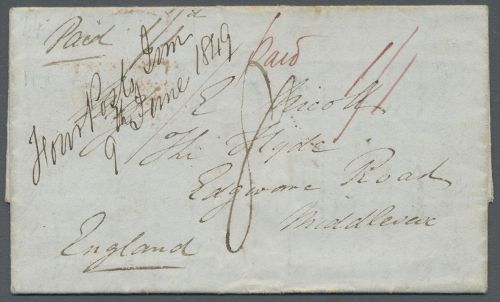 Paid
Paid 1/1
9th June 1849
E Nicoll
The Hyde
Edgware Road
Middlesex
England
8